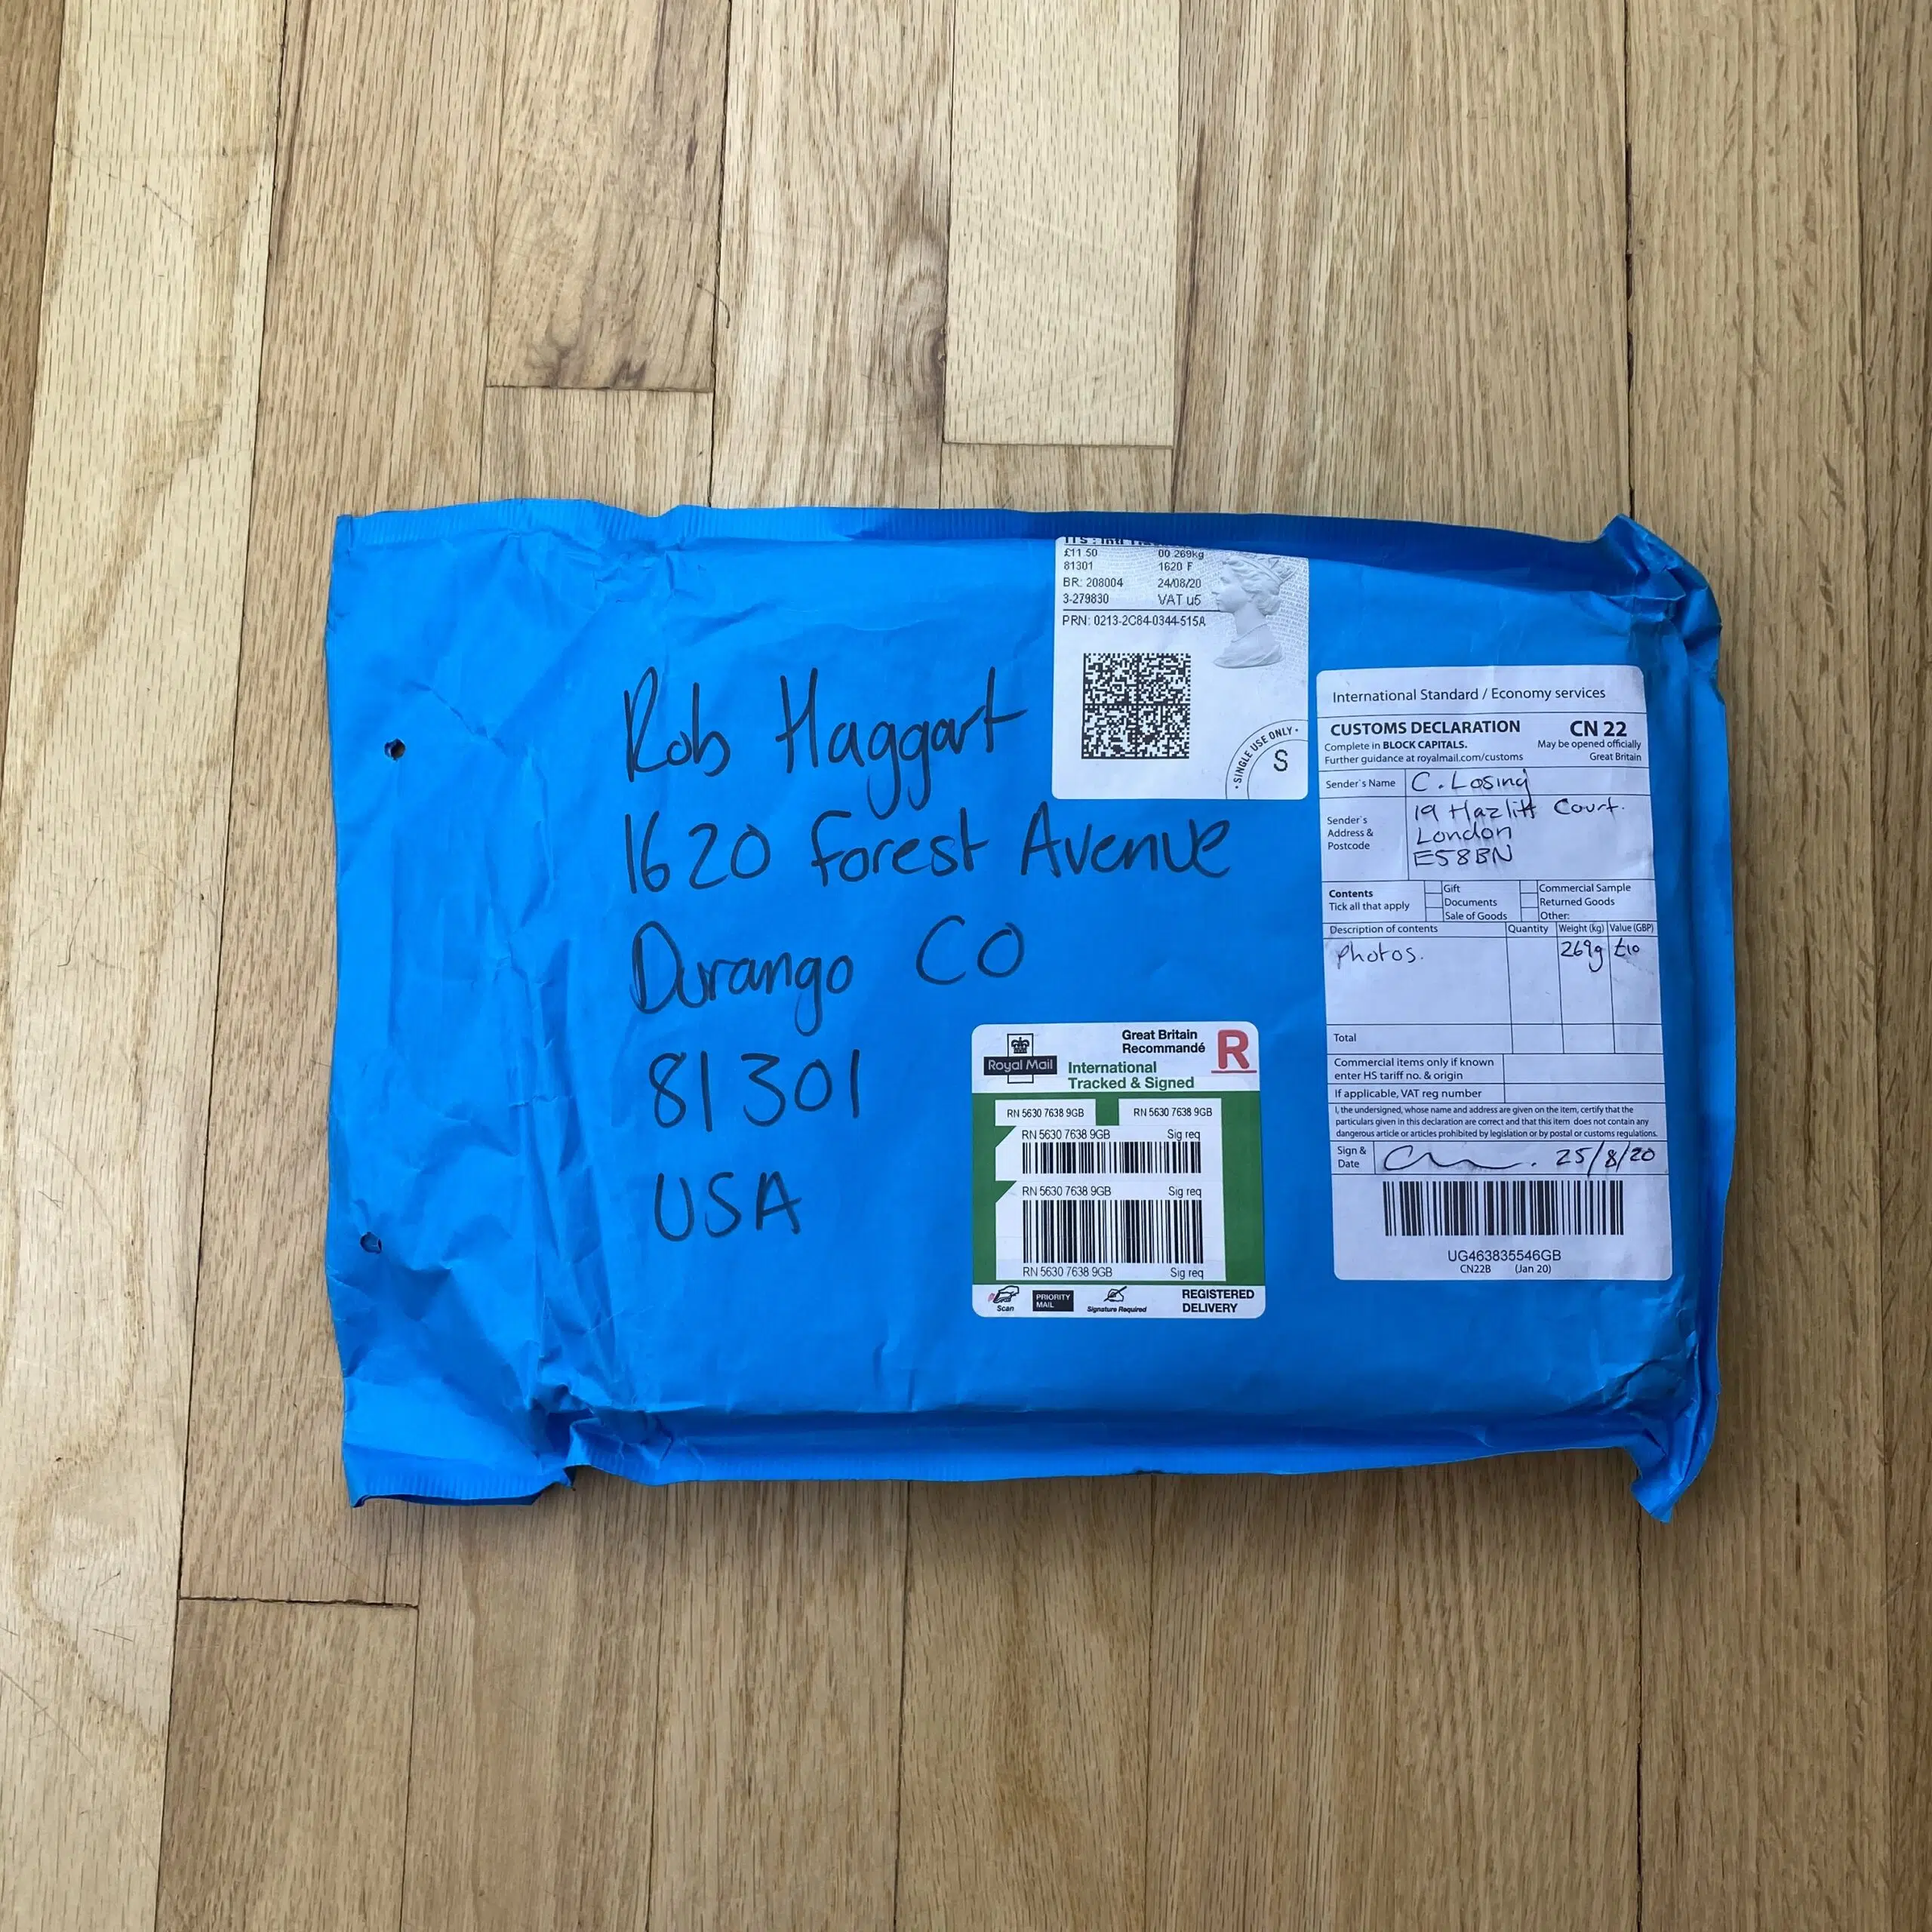 £11 50 00 269kg
81301 1620 F
BR: 208004 24/08/20
3-279830 VAT u5
PRN: 0213-2C84-0344-515A
• SINGLE USE ONLY •
S
Rob Haggart
1620 Forest Avenue
Durango CO
81301
USA
International Standard / Economy services
CUSTOMS DECLARATION CN 22
Complete in BLOCK CAPITALS. May be opened officially
Further guidance at royalmail.com/customs Great Britain
Sender's Name C. Losing
Sender's Address & Postcode
19 Hazlitt Court.
London
E58BN
Contents
Tick all that apply
Gift Commercial Sample
Documents Returned Goods
Sale of Goods Other:
Description of contents Quantity Weight (kg) Value (GBP)
Photos. 269g £10
Total
Commercial items only if known
enter HS tariff no. & origin
If applicable, VAT reg number
I, the undersigned, whose name and address are given on the item, certify that the
particulars given in this declaration are correct and that this item does not contain any
dangerous article or articles prohibited by legislation or by postal or customs regulations.
Sign & Date 25/8/20
UG463835546GB
CN22B (Jan 20)
Royal Mail
Great Britain
Recommandé
R
International
Tracked & Signed
RN 5630 7638 9GB RN 5630 7638 9GB
RN 5630 7638 9GB Sig req
RN 5630 7638 9GB Sig req
RN 5630 7638 9GB Sig req
Scan
PRIORITY MAIL
Signature Required
REGISTERED
DELIVERY